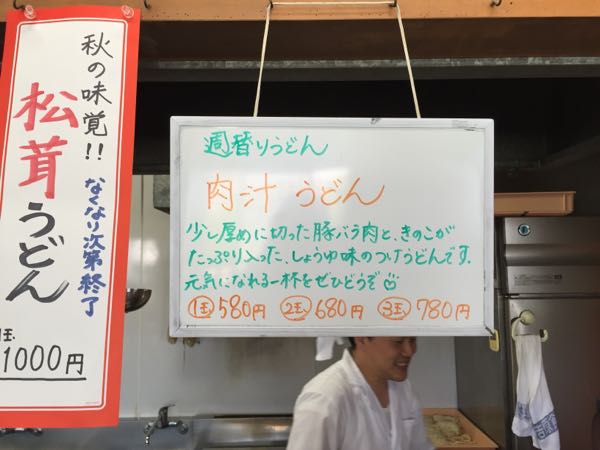 秋の味覚!!
松茸うどん
なくなり次第終了
1玉
1000円
週替りうどん
肉汁うどん
少し厚めに切った豚バラ肉と、きのこが
たっぷり入った、しょうゆ味のつけうどんです。
元気になれる一杯をぜひどうぞ
1玉 580円 2玉 680円 3玉 780円